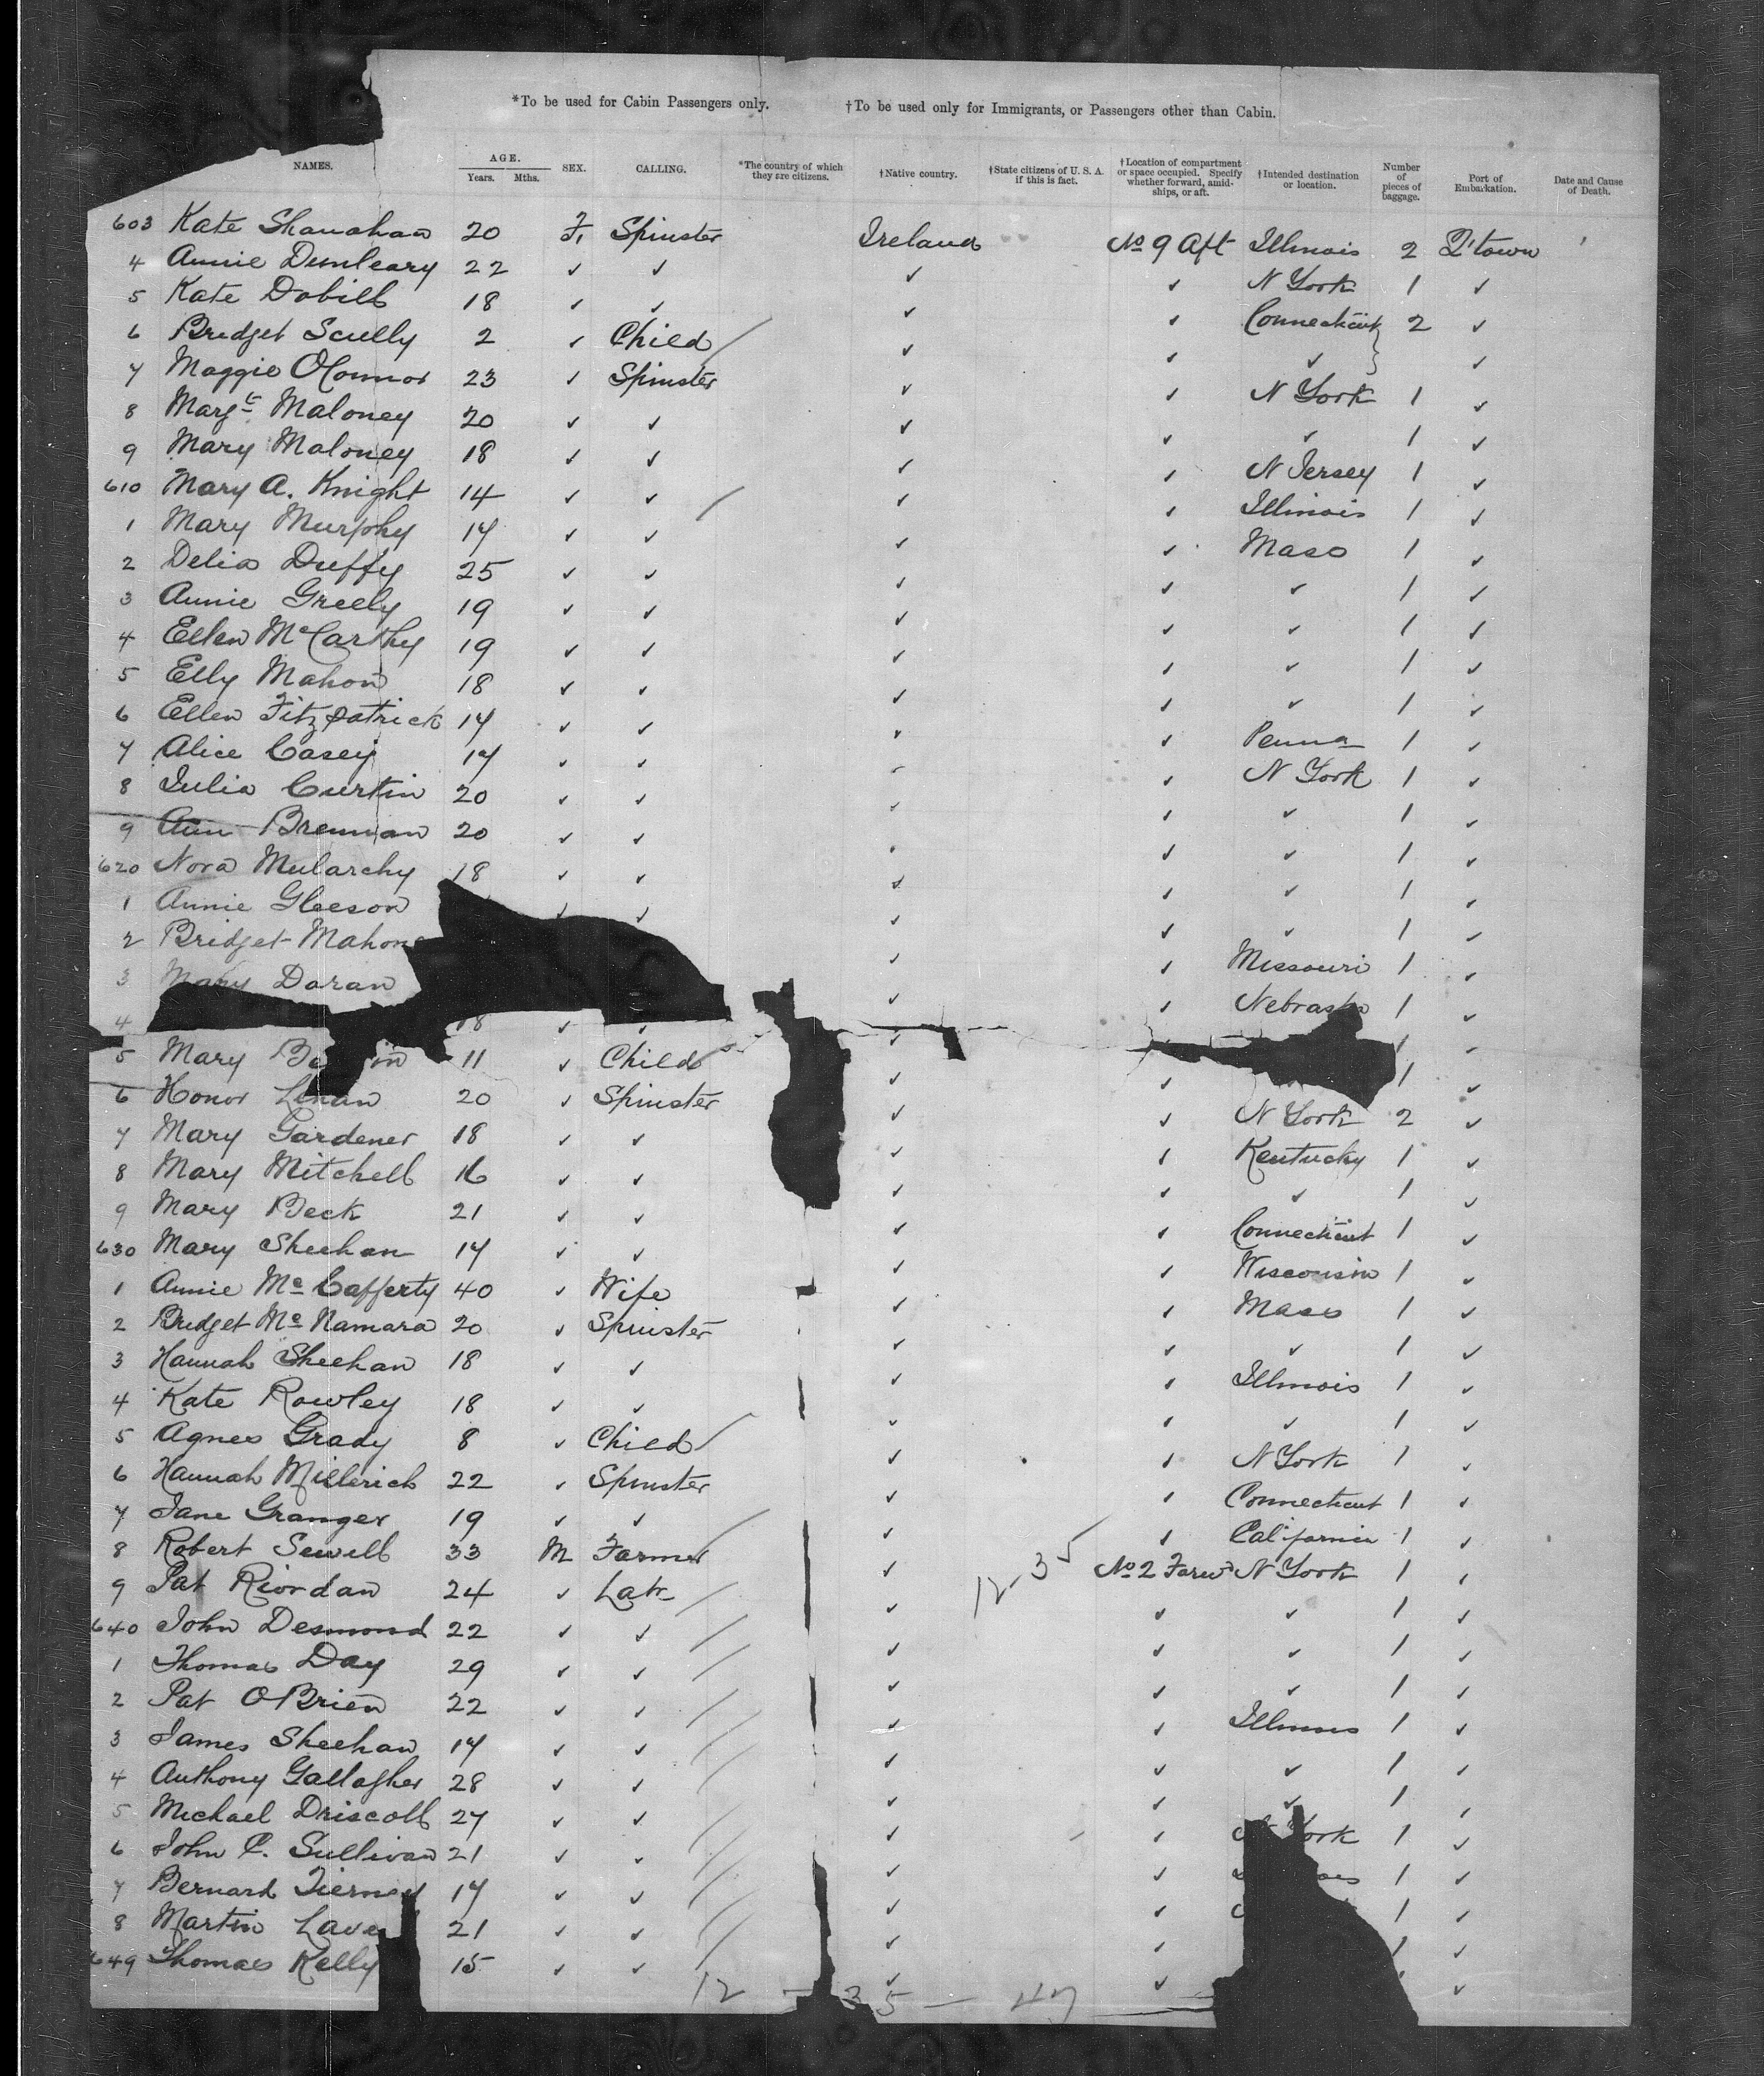 *To be used for Cabin Passengers only. †To be used only for Immigrants, or Passengers other than Cabin.
NAMES. AGE. Years. Mths. SEX. CALLING. *The country of which they are citizens. †Native country. †State citizens of U. S. A. if this is fact. †Location of compartment or space occupied. Specify whether forward, amidships, or aft. †Intended destination or location. Number of pieces of baggage. Port of Embarkation. Date and Cause of Death.
603 Kate Shanahan 20 F. Spinster Ireland No 9 Aft Illinois 2 Q'town
4 Annie Dunleary 22 ✓ ✓ ✓ ✓ N York 1 ✓
5 Kate Dobill 18 ✓ ✓ ✓ ✓ Connecticut 2 ✓
6 Bridget Scully 2 ✓ Child ✓ ✓ ✓ ✓
7 Maggie OConnor 23 ✓ Spinster ✓ ✓ N York 1 ✓
8 Margt Maloney 20 ✓ ✓ ✓ ✓ ✓ 1 ✓
9 Mary Maloney 18 ✓ ✓ ✓ ✓ N Jersey 1 ✓
610 Mary A. Knight 14 ✓ ✓ ✓ ✓ Illinois 1 ✓
1 Mary Murphy 17 ✓ ✓ ✓ ✓ Mass 1 ✓
2 Delia Duffy 25 ✓ ✓ ✓ ✓ ✓ 1 ✓
3 Annie Greely 19 ✓ ✓ ✓ ✓ ✓ 1 ✓
4 Ellen McCarthy 19 ✓ ✓ ✓ ✓ ✓ 1 ✓
5 Elly Mahon 18 ✓ ✓ ✓ ✓ ✓ 1 ✓
6 Ellen Fitzpatrick 17 ✓ ✓ ✓ ✓ Penna 1 ✓
7 Alice Casey 17 ✓ ✓ ✓ ✓ N York 1 ✓
8 Julia Curtin 20 ✓ ✓ ✓ ✓ ✓ 1 ✓
9 Ann Brennan 20 ✓ ✓ ✓ ✓ ✓ 1 ✓
620 Nora Mularchy 18 ✓ ✓ ✓ ✓ ✓ 1 ✓
1 Annie Gleeson ✓ ✓ ✓ ✓ ✓ 1 ✓
2 Bridget Mahon ✓ ✓ Missouri 1 ✓
3 Mary Doran ✓ ✓ Nebraska 1 ✓
4 18 ✓ ✓ ✓ 1 ✓
5 Mary 11 ✓ Child ✓ ✓ 1 ✓
6 Honor Linan 20 ✓ Spinster ✓ ✓ N York 2 ✓
7 Mary Gardener 18 ✓ ✓ ✓ ✓ Kentucky 1 ✓
8 Mary Mitchell 16 ✓ ✓ ✓ ✓ ✓ 1 ✓
9 Mary Beck 21 ✓ ✓ ✓ ✓ Connecticut 1 ✓
630 Mary Sheehan 17 ✓ ✓ ✓ ✓ Wisconsin 1 ✓
1 Annie McCafferty 40 ✓ Wife ✓ ✓ Mass 1 ✓
2 Bridget McNamara 20 ✓ Spinster ✓ ✓ ✓ 1 ✓
3 Hannah Sheehan 18 ✓ ✓ ✓ ✓ Illinois 1 ✓
4 Kate Rowley 18 ✓ ✓ ✓ ✓ ✓ 1 ✓
5 Agnes Grady 8 ✓ Child ✓ ✓ N York 1 ✓
6 Hannah Millerick 22 ✓ Spinster ✓ ✓ Connecticut 1 ✓
7 Jane Granger 19 ✓ ✓ ✓ ✓ California 1 ✓
8 Robert Sewell 33 M Farmer ✓ 12-35 No 2 Forwd N York 1 ✓
9 Pat Riordan 24 ✓ Labr ✓ ✓ ✓ 1 ✓
640 John Desmond 22 ✓ ✓ ✓ ✓ ✓ 1 ✓
1 Thomas Day 29 ✓ ✓ ✓ ✓ ✓ 1 ✓
2 Pat OBrien 22 ✓ ✓ ✓ ✓ Illinois 1 ✓
3 James Sheehan 17 ✓ ✓ ✓ ✓ ✓ 1 ✓
4 Anthony Gallagher 28 ✓ ✓ ✓ ✓ ✓ 1 ✓
5 Michael Driscoll 27 ✓ ✓ ✓ ✓ York 1 ✓
6 John C. Sullivan 21 ✓ ✓ ✓ ✓ 1 ✓
7 Bernard Tierney 17 ✓ ✓ ✓ ✓ 1 ✓
8 Martin 21 ✓ ✓ ✓ ✓ 1 ✓
649 Thomas Kelly 15 ✓ ✓ ✓ ✓ ✓
12 - 35 - 47